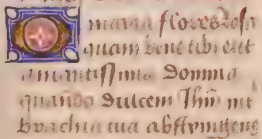 O maria flores rosa
quam bene tibi erat
amantissima domina
quando dulcem Ihm int
brachia tua abstringens